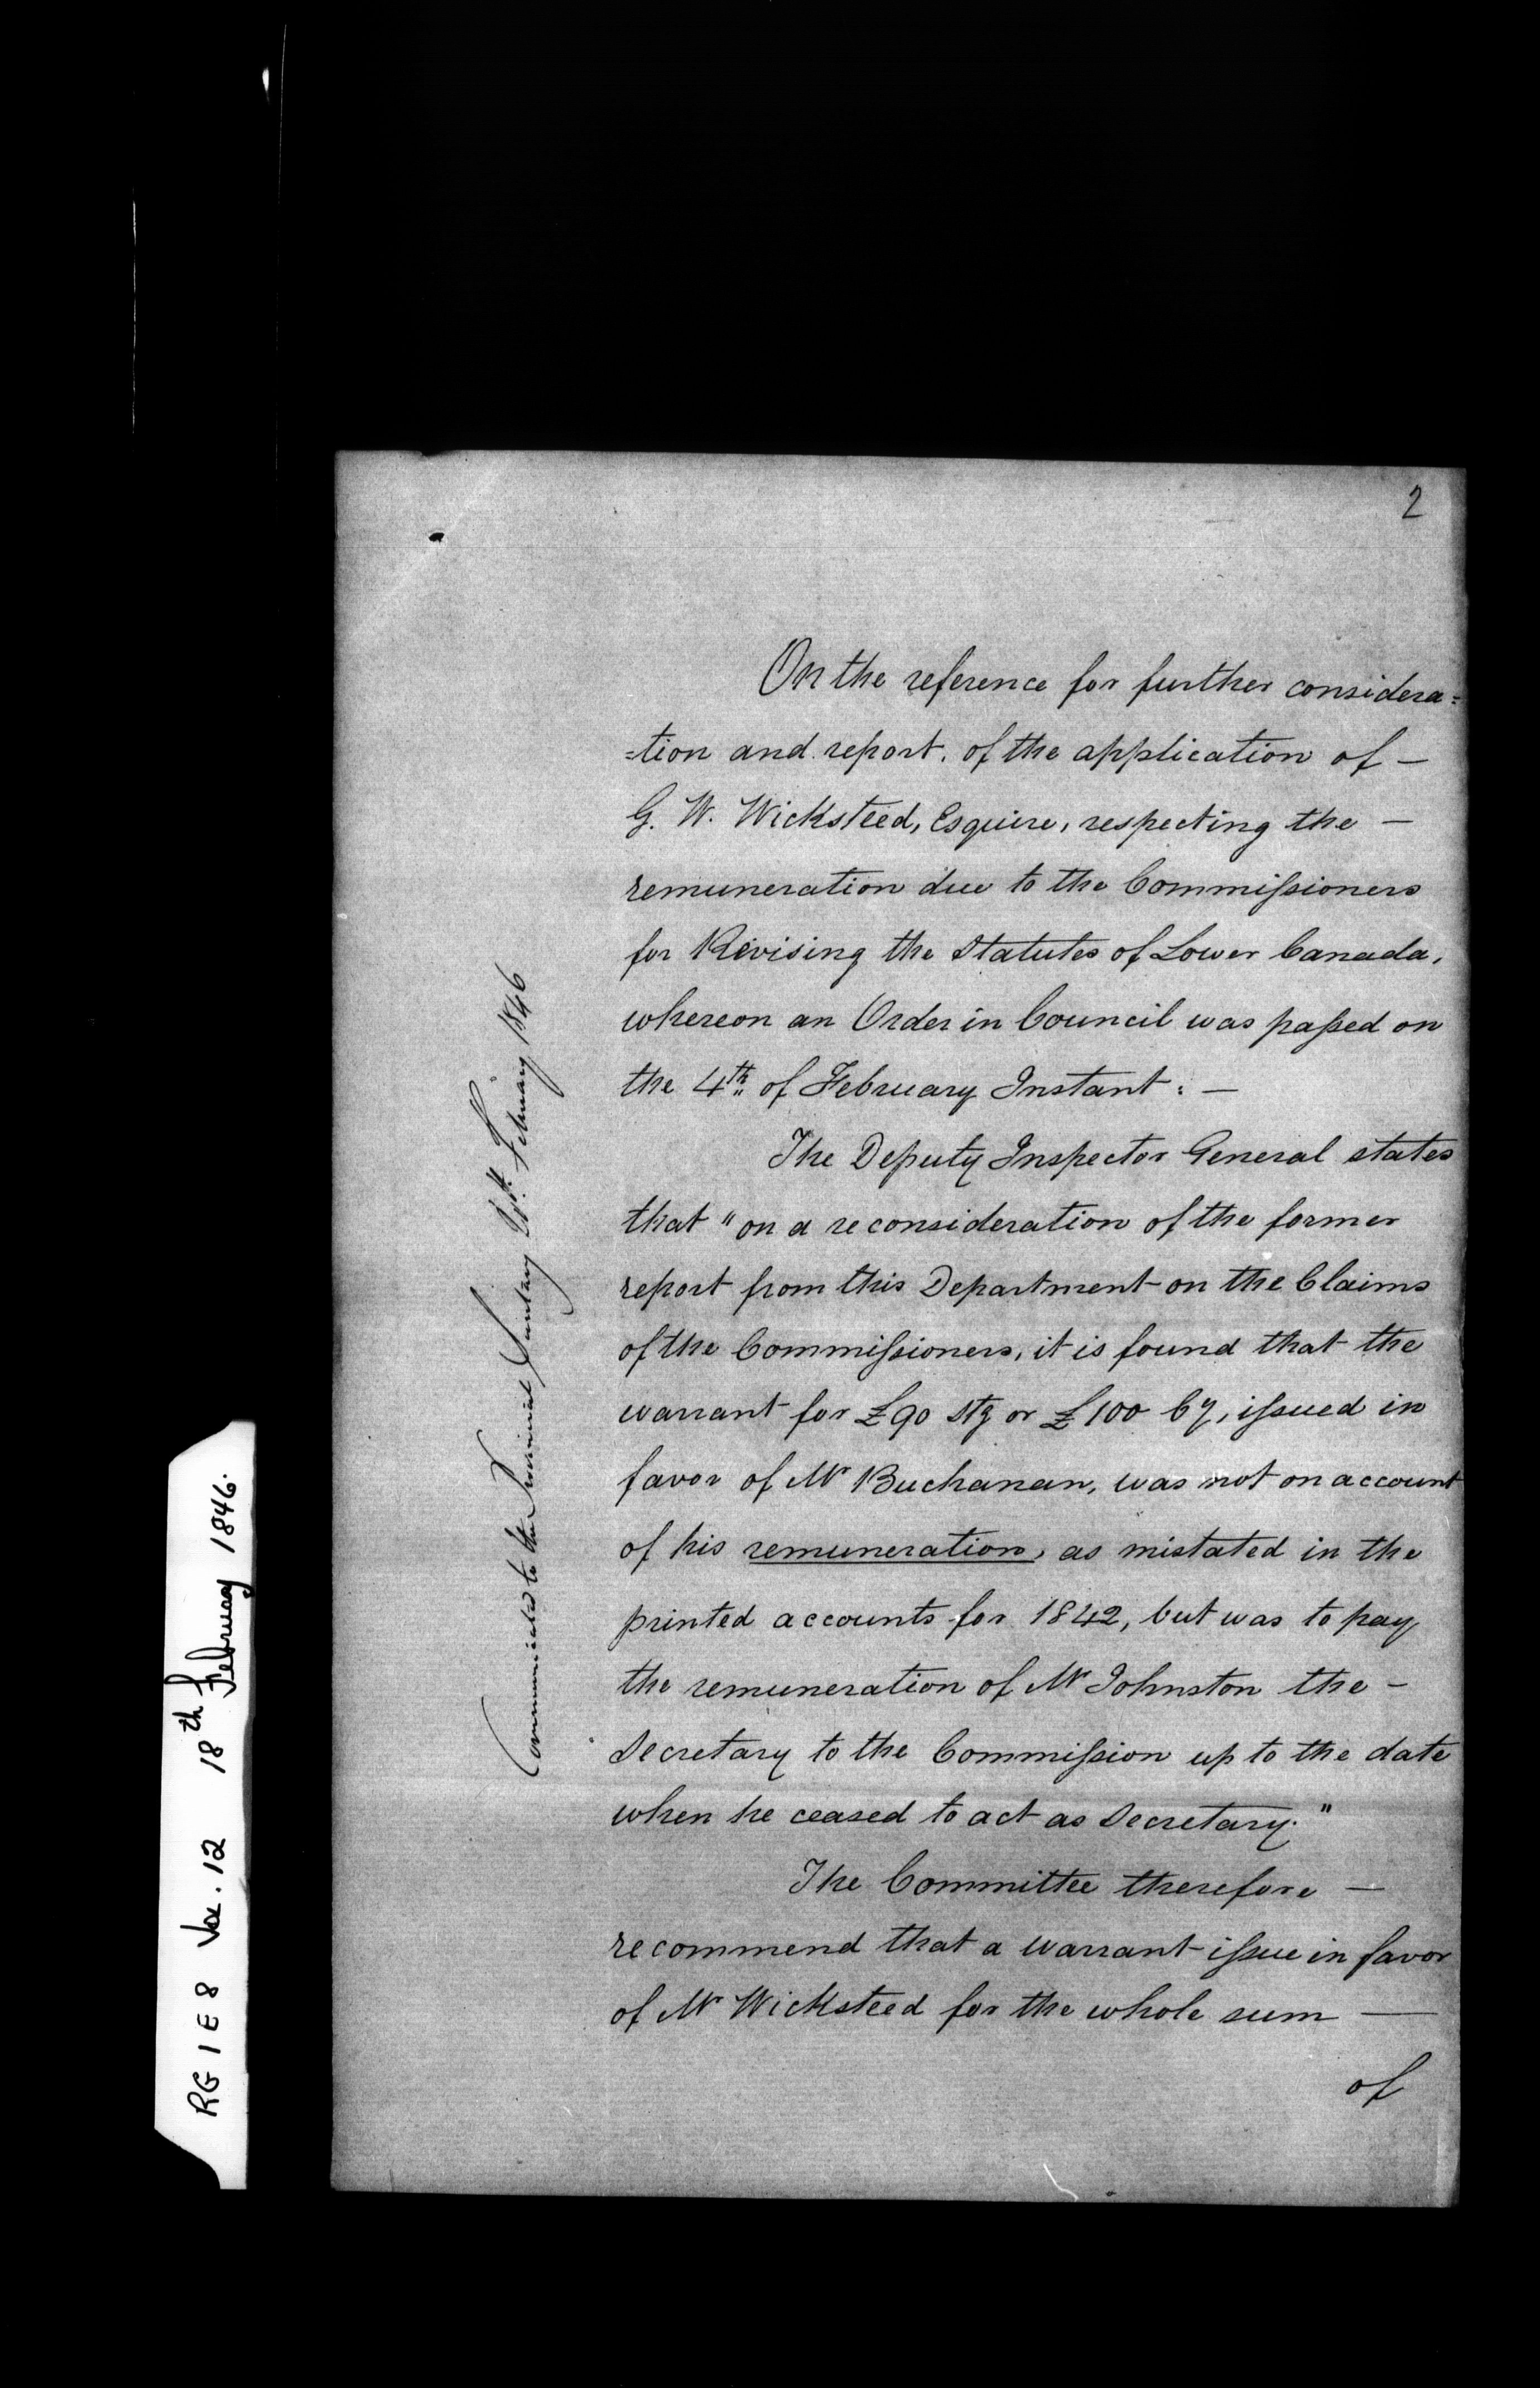 2
On the reference for further considera=
=tion and report, of the application of —
G. W. Wicksteed, Esquire, respecting the —
remuneration due to the Commissioners
for Revising the Statutes of Lower Canada,
whereon an Order in Council was passed on
the 4th of February Instant: —
The Deputy Inspector General states
that "on a reconsideration of the former
report from this Department on the Claims
of the Commissioners, it is found that the
warrant for £90 Stg or £100 Cy, issued in
favor of Mr Buchanan, was not on account
of his remuneration, as mistated in the
printed accounts for 1842, but was to pay
the remuneration of Mr Johnston the —
Secretary to the Commission up to the date
when he ceased to act as Secretary."
The Committee therefore —
recommend that a warrant issue in favor
of Mr Wicksteed for the whole sum —
of
Communicated to the Provincial Secretary February 1846
RG 1 E 8 Vol. 12 18th February 1846.